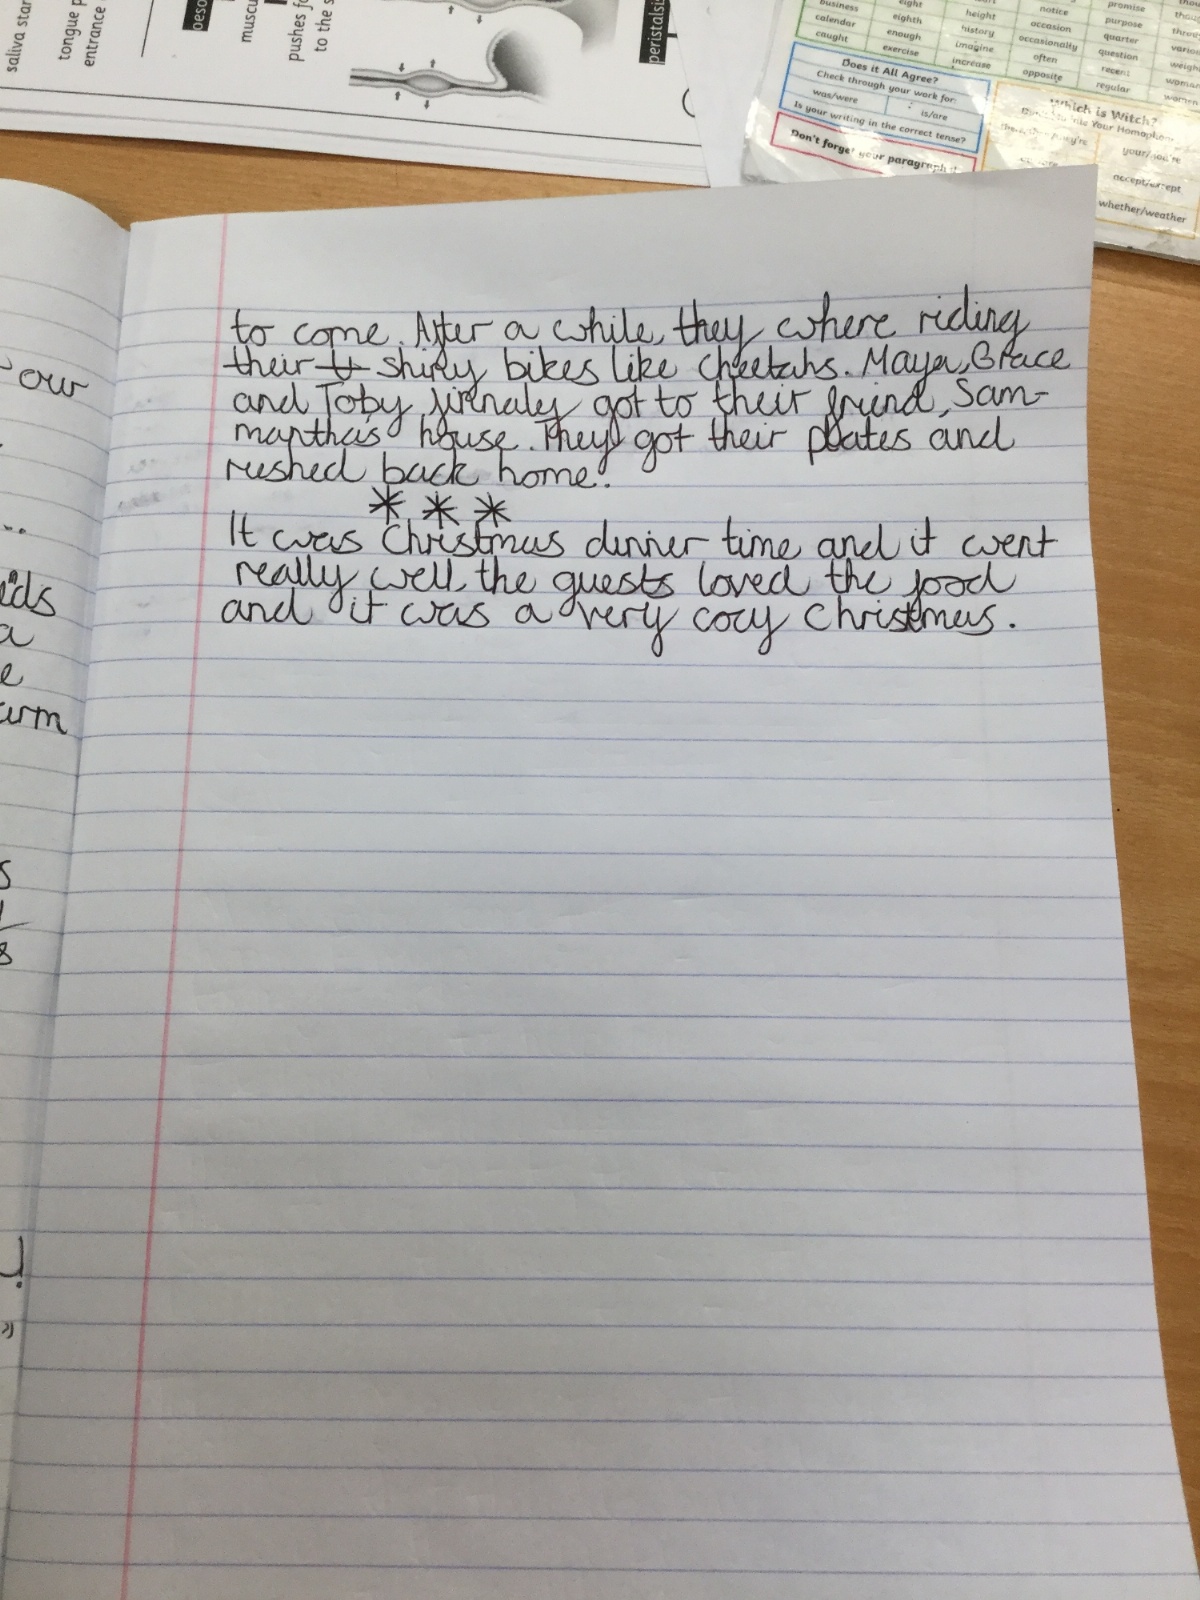 saliva star
tongue p
entrance
oeso
muscu
pushes fo
to the s
peristalsi
business
calendar
caught
eight
eighth
enough
exercise
height
history
imagine
increase
notice
occasion
occasionally
often
opposite
promise
purpose
quarter
question
recent
regular
Does it All Agree?
Check through your work for:
was/were
is/are
Is your writing in the correct tense?
Don't forget your paragraph
Which is Witch?
Your Homophon
accept/except
whether/weather
our
ids
a
e
arm
s
to come. After a while, they where riding
their shiny bikes like cheetahs. Maya, Grace
and Toby finnaley got to their friend, Sam-
mantha's house. They got their plates and
rushed back home.
* * *
It was Christmas dinner time and it went
really well, the guests loved the food
and it was a very cozy Christmas.